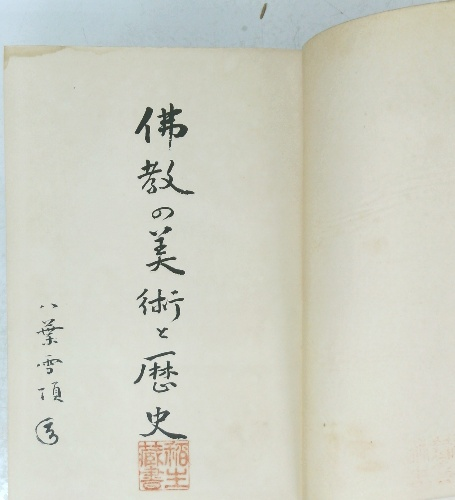 佛教の美術と歴史
八葉雪頂
稲生
蔵書